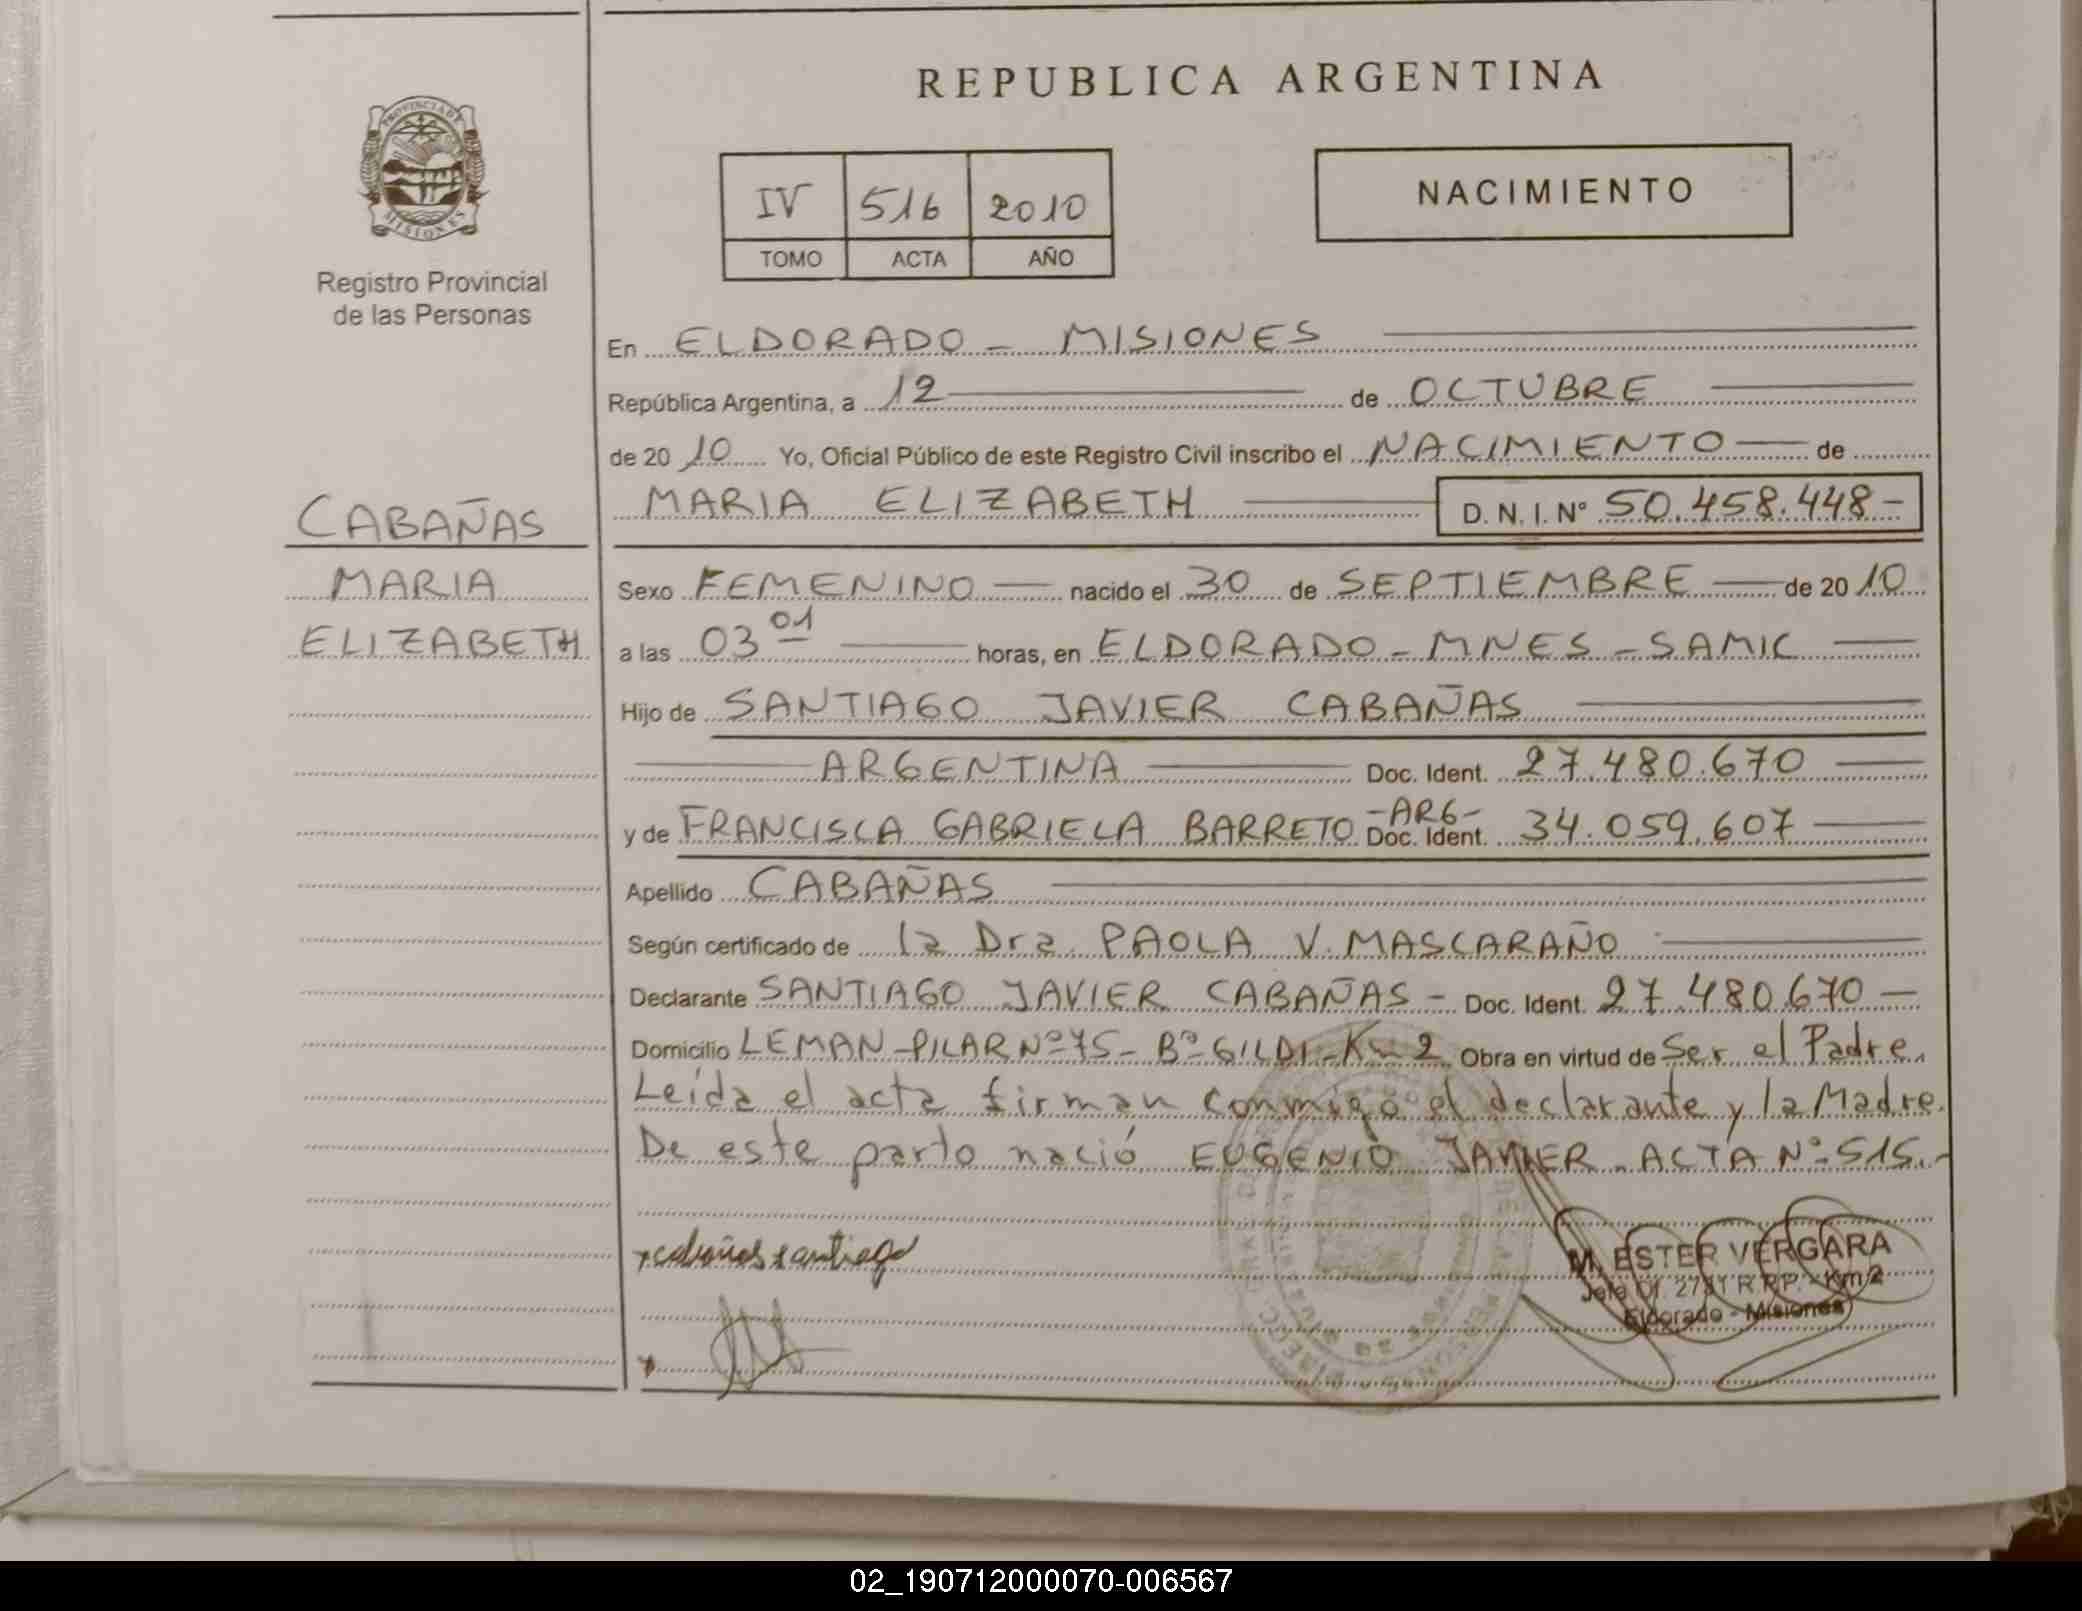 REPUBLICA ARGENTINA
PROVINCIA DE
MISIONES
Registro Provincial
de las Personas
IV 516 2010
TOMO ACTA AÑO
NACIMIENTO
En ELDORADO - MISIONES
República Argentina, a 12 de OCTUBRE
de 20 10 Yo, Oficial Público de este Registro Civil inscribo el NACIMIENTO de
CABAÑAS
MARIA
ELIZABETH
MARIA ELIZABETH D. N. I. N° 50.458.448-
Sexo FEMENINO nacido el 30 de SEPTIEMBRE de 20 10
a las 03 01 horas, en ELDORADO - MNES - SAMIC
Hijo de SANTIAGO JAVIER CABAÑAS
ARGENTINA Doc. Ident. 27.480.670
y de FRANCISCA GABRIELA BARRETO -ARG- Doc. Ident. 34.059.607
Apellido CABAÑAS
Según certificado de la Dra. PAOLA V. MASCARAÑO
Declarante SANTIAGO JAVIER CABAÑAS - Doc. Ident. 27.480.670
Domicilio LEMAN - PILAR Nº 75 - Bº GILDI - Km 2 Obra en virtud de Ser el Padre.
Leída el acta firman conmigo el declarante y la Madre.
De este parto nació EUGENIO JAVIER ACTA Nº 515.-
cabañas santiago
M. ESTER VERGARA
Jefe Of. 2781 R.P.P. - Km 2
Eldorado - Misiones
02_190712000070-006567